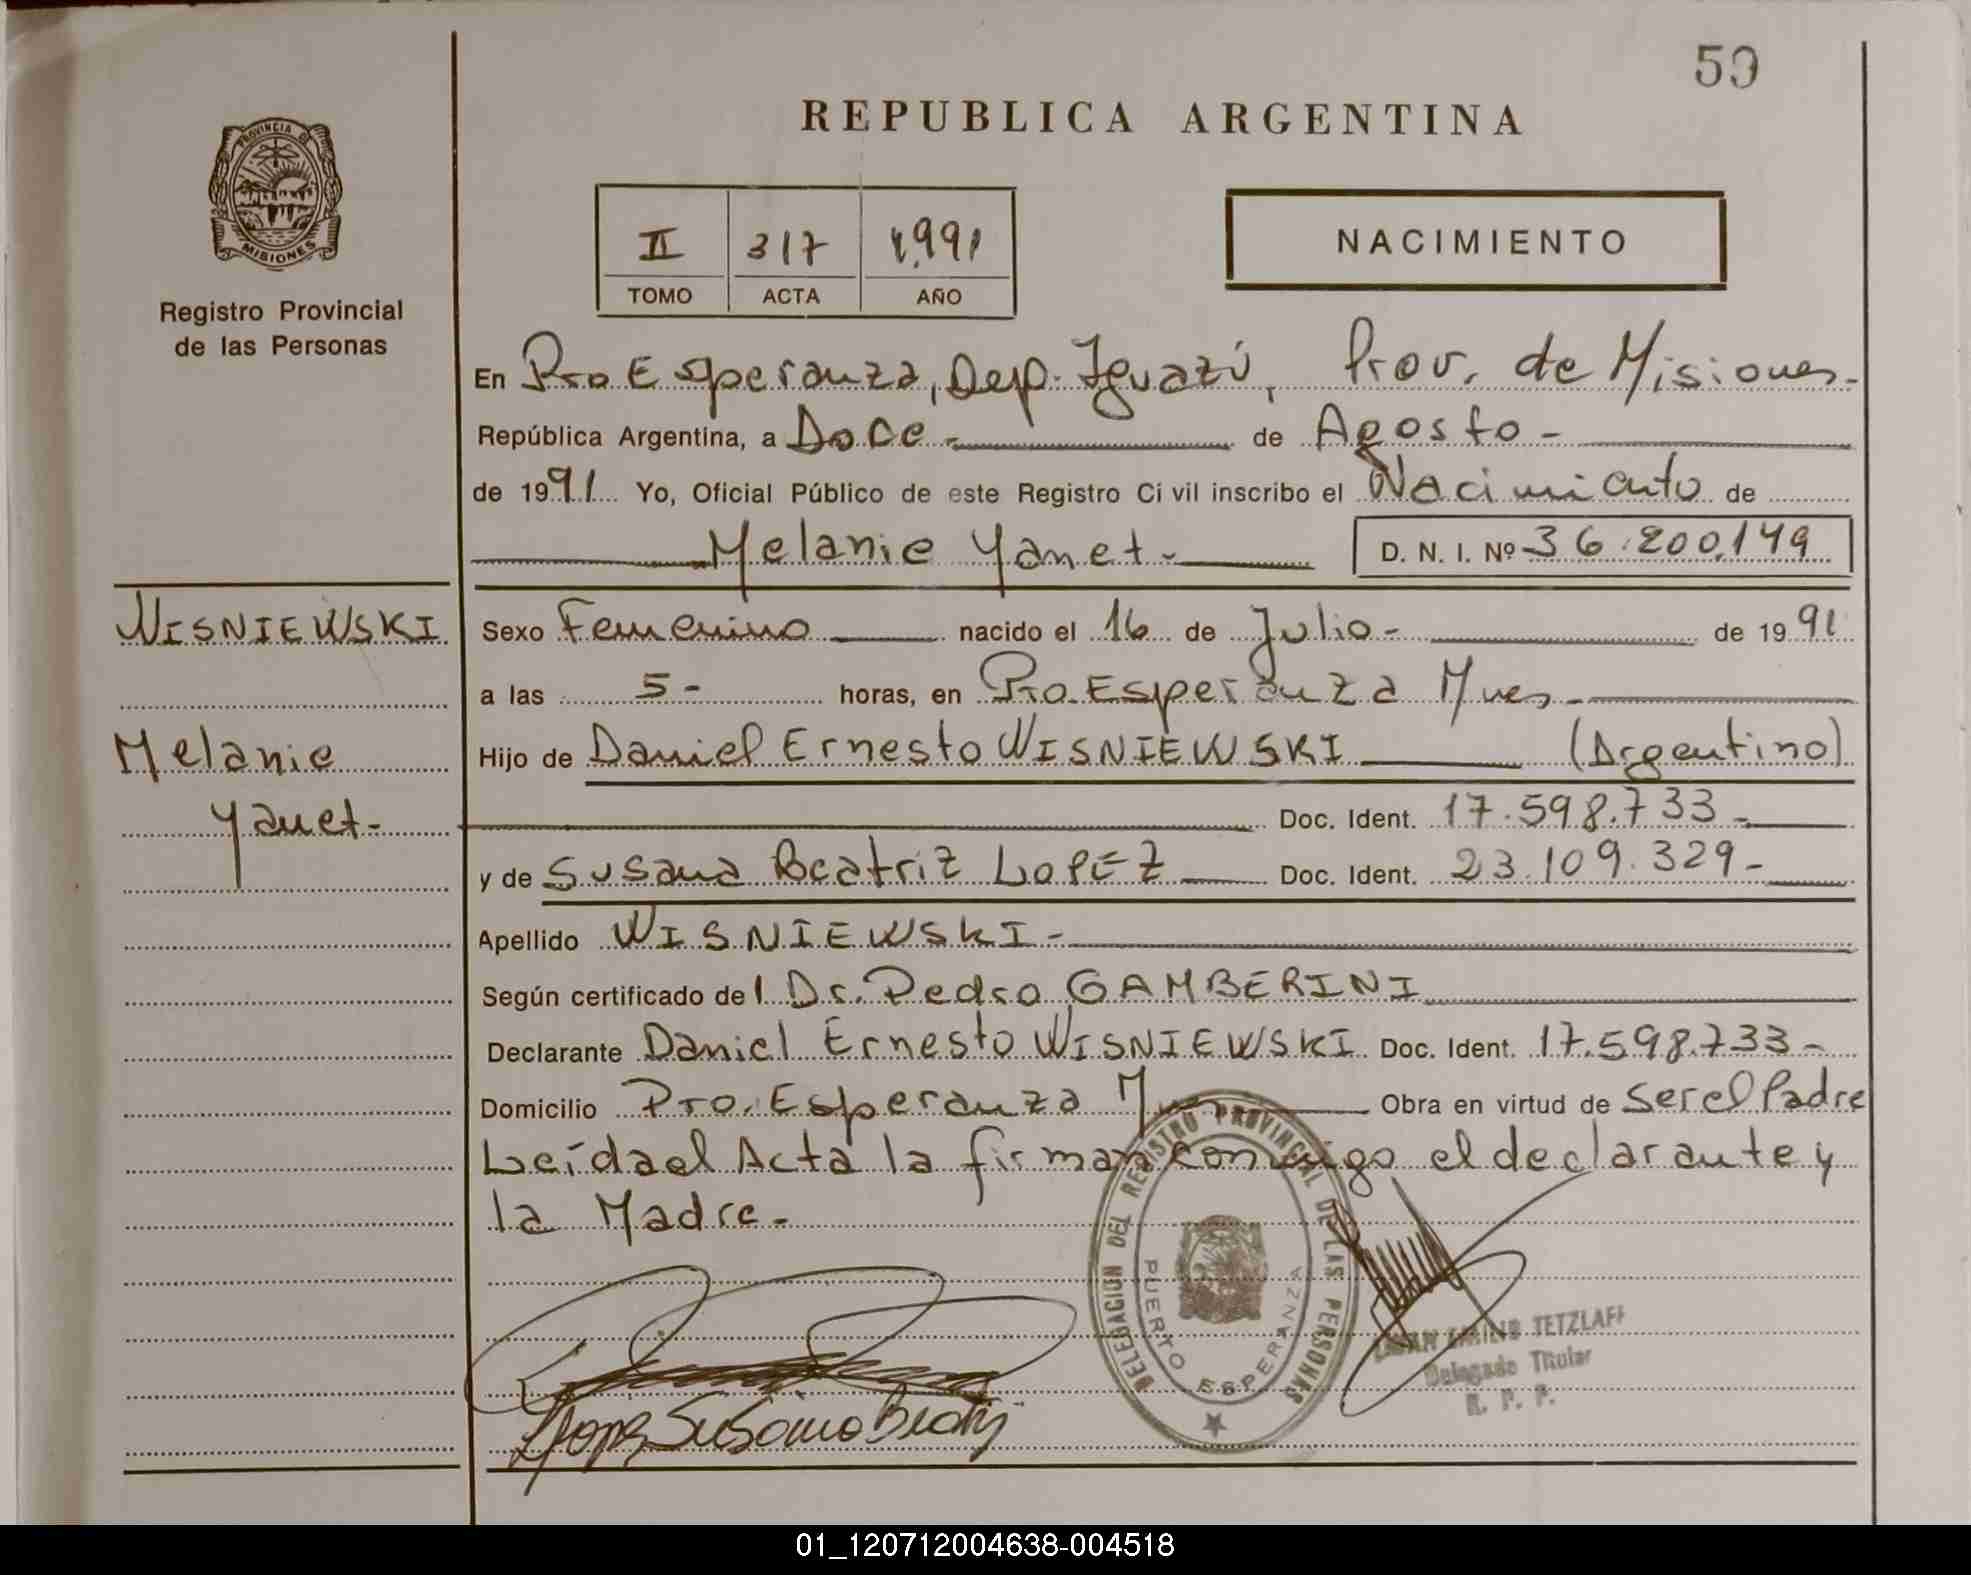 50
REPUBLICA ARGENTINA
PROVINCIA DE
MISIONES
Registro Provincial
de las Personas
II 317 1.991
TOMO ACTA AÑO
NACIMIENTO
En Pto Esperanza, Dep. Iguazú, Prov. de Misiones.-
República Argentina, a Doce.- de Agosto -
de 1991 Yo, Oficial Público de este Registro Civil inscribo el Nacimiento de
Melanie Yanet.- D. N. I. Nº 36.200.149
WISNIEWSKI
Melanie
Yanet-
Sexo Femenino nacido el 16 de Julio- de 1991
a las 5- horas, en Pto. Esperanza Mnes.-
Hijo de Daniel Ernesto WISNIEWSKI (Argentino)
Doc. Ident. 17.598.733-
y de Susana Beatriz LOPEZ Doc. Ident. 23.109.329-
Apellido WISNIEWSKI-
Según certificado del Dr. Pedro GAMBERINI
Declarante Daniel Ernesto WISNIEWSKI Doc. Ident. 17.598.733-
Domicilio Pto. Esperanza Obra en virtud de ser el Padre
Leída el Acta la firman conmigo el declarante y
la Madre-
DELEGACION DEL REGISTRO PROVINCIAL DE LAS PERSONAS
PUERTO ESPERANZA
TETZLAFF
Delegado Titular
R. P. P.
Lopez Susana Beatriz
01_120712004638-004518